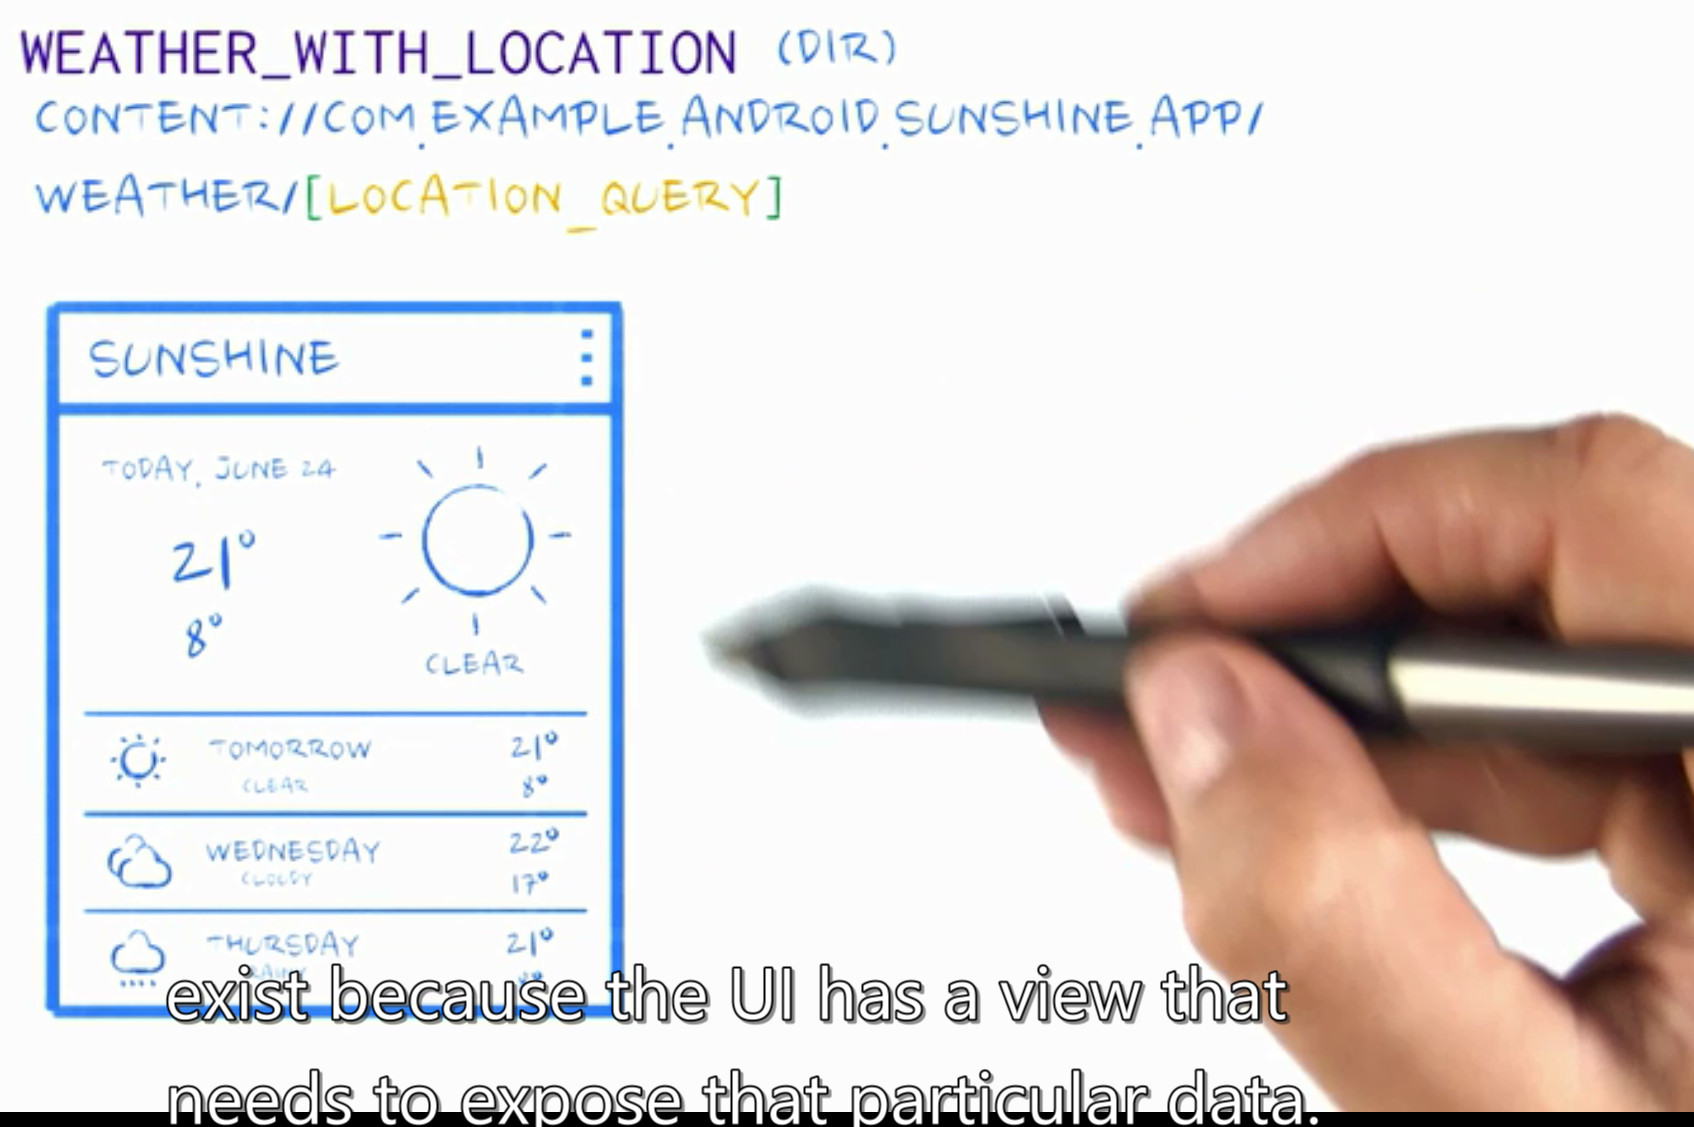 WEATHER_WITH_LOCATION (DIR)
CONTENT://COM.EXAMPLE.ANDROID.SUNSHINE.APP/
WEATHER/[LOCATION_QUERY]
SUNSHINE
TODAY, JUNE 24
21°
8°
CLEAR
TOMORROW 21°
CLEAR 8°
WEDNESDAY 22°
CLOUDY 17°
THURSDAY 21°
exist because the UI has a view that
needs to expose that particular data.